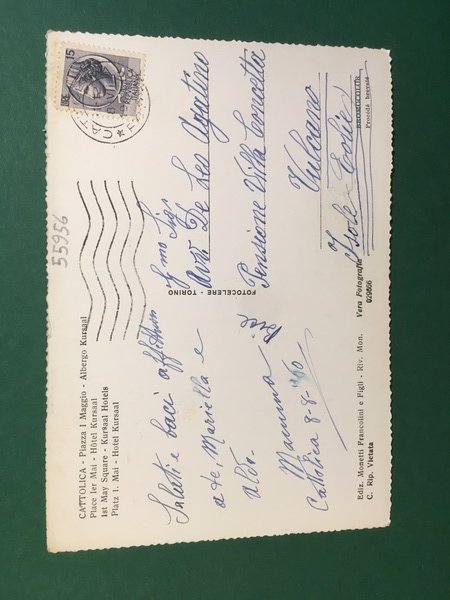 CATTOLICA - Piazza I Maggio - Albergo Kursaal
Place Ier Mai - Hôtel Kursaal
1st May Square - Kursaal Hotels
Platz 1. Mai - Hotel Kursaal
55956
Saluti e baci affettuosi
a te, Mariella e
Aldo.
Mamma
Cattolica 8-8-'60
Ediz. Monetti Francolini e Figli - Riv. Mon.
C. Rip. Vietata
FOTOCELERE - TORINO
Avv. De Leo Agatino
Pensione Villa Concetta
Vulcano
Isole Eolie
Vera Fotografia
029866
BROMOCOLOR
Procédé breveté